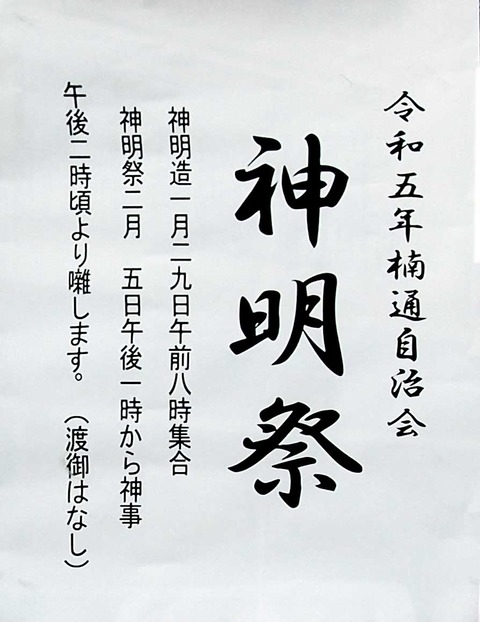 令和五年楠通自治会
神明祭
神明造一月二九日午前八時集合
神明祭二月　五日午後一時から神事
午後二時頃より囃します。　（渡御はなし）